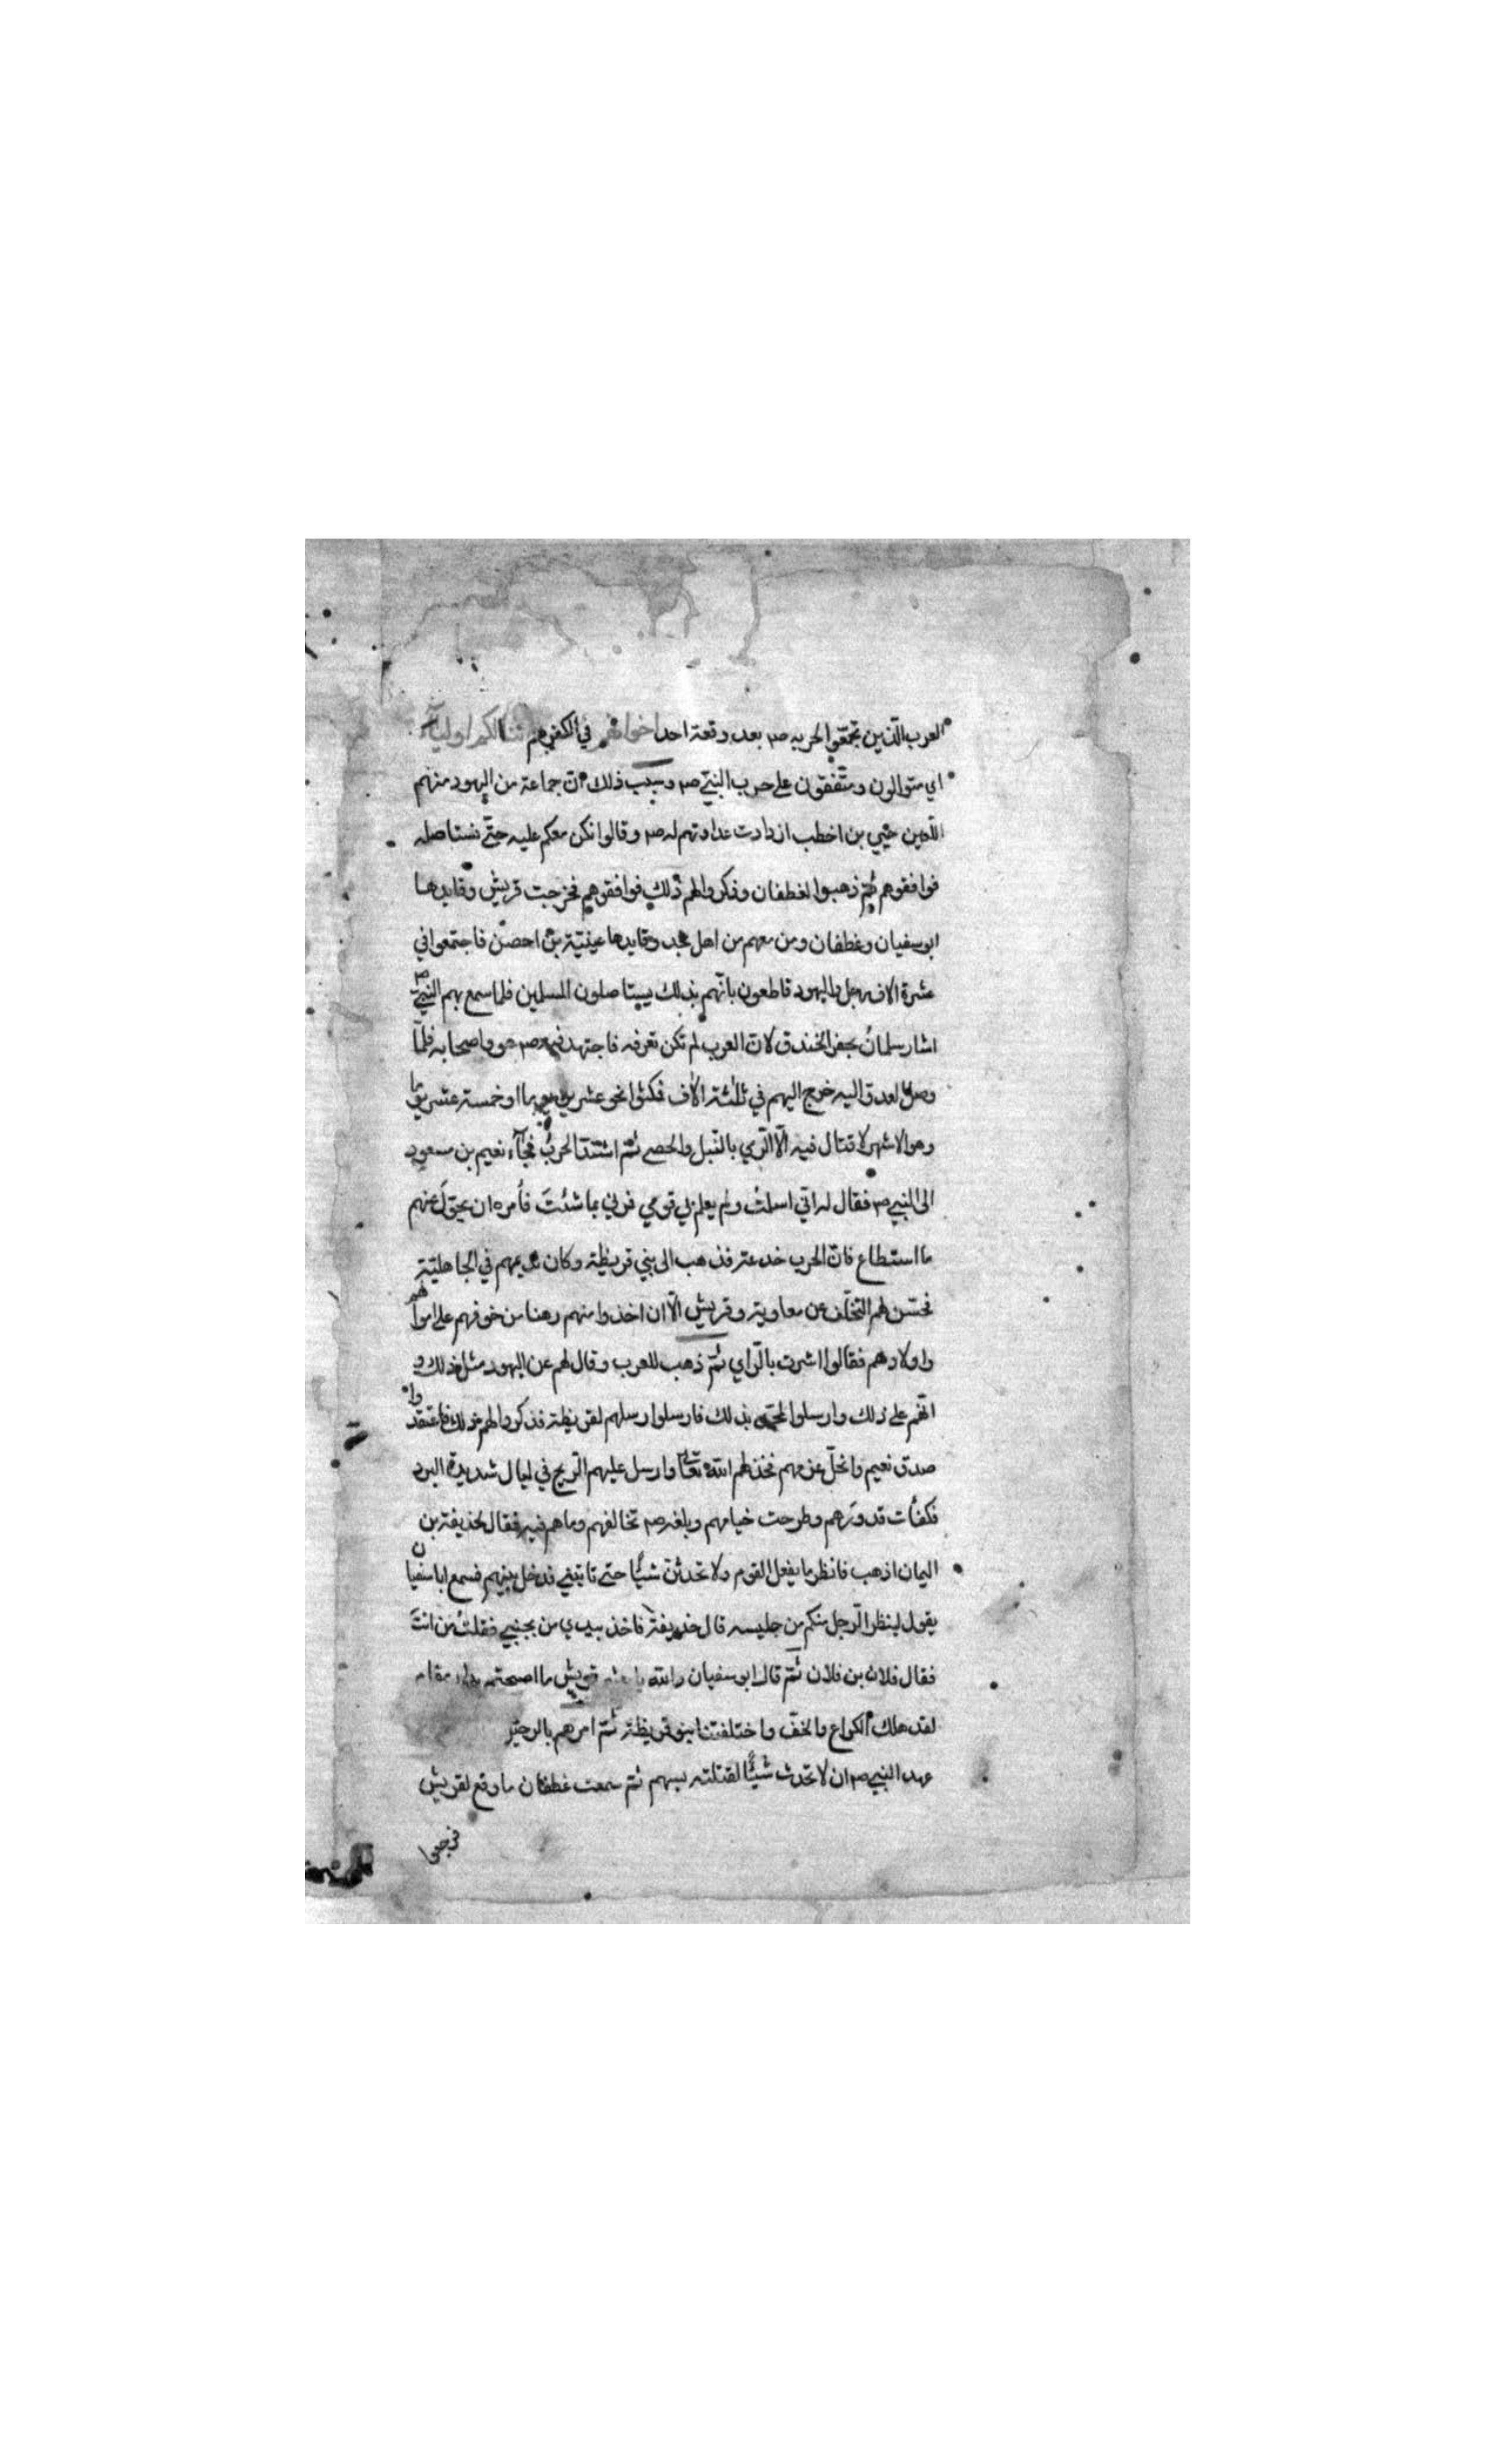 العرب الذين تجمعوا لحربه ص بعد وقعة احد اخوانهم في الكفر هم لنا لكم اولياء
اي متوالون ومتفقون على حرب النبي ص وسبب ذلك ان جماعة من اليهود منهم
اللعين حيي بن اخطب ازدادت عداوتهم له ص وقالوا نكن معكم عليه حتى نستاصله
فوافقوهم ثم ذهبوا لغطفان وذكروا لهم ذلك فوافقوهم فخرجت قريش وقايدها
ابو سفيان وغطفان ومن معهم من اهل نجد وقايدها عيينة بن احصن فاجتمعوا في
عشرة الاف رجل واليهود قاطعون بانهم بذلك يستاصلون المسلمين فلما سمع بهم النبي ص
اشار سلمان بحفر الخندق لان العرب لم تكن تعرفه فاجتهد فيه ص هو واصحابه فلما
وصل العدو اليه خرج اليهم في ثلثة الاف فمكثوا نحو عشرين يوما او خمسة عشر يوما
وهو الاشهر لا قتال فيه الا الرمي بالنبل والحصى ثم اشتد الحرب فجاء نعيم بن مسعود
الى النبي ص فقال له اني اسلمت ولم يعلم بي قومي فمرني بما شئت فأمره ان يخذل عنهم
ما استطاع فان الحرب خدعة فذهب الى بني قريظة وكان نديمهم في الجاهلية
فحسن لهم التخلف عن معاوية وقريش الا ان اخذوا منهم رهنا من خوفهم على اموالهم
واولادهم فقالوا اشرت بالراي ثم ذهب للعرب وقال لهم عن اليهود مثل ذلك و
انهم على ذلك وارسلوا بذلك فارسلوا رسلهم لقريظة فذكروا لهم ذلك فاعتقدوا
صدق نعيم وانحل عزمهم فخذلهم الله تعالى وارسل عليهم الريح في ليال شديدة البرد
فكفأت قدورهم وطرحت خيامهم وبلغه ص تخالفهم وما هم فيه فقال لحذيفة بن
اليمان اذهب فانظر ما يفعل القوم ولا تحدثن شيئا حتى تاتيني فدخل بينهم فسمع ابا سفيان
يقول لينظر الرجل منكم من جليسه قال حذيفة فاخذ بيدي من بجنبي فقلت من انت
فقال فلان بن فلان ثم قال ابو سفيان والله يا قريش ما اصبحتم بدار مقام
لقد هلك الكراع والخف واختلفتنا بنو قريظة ثم امرهم بالرحيل
عهد النبي ص ان لا تحدث شيئا لقتلته بسهم ثم سمعت غطفان ما وقع لقريش
فرجعوا